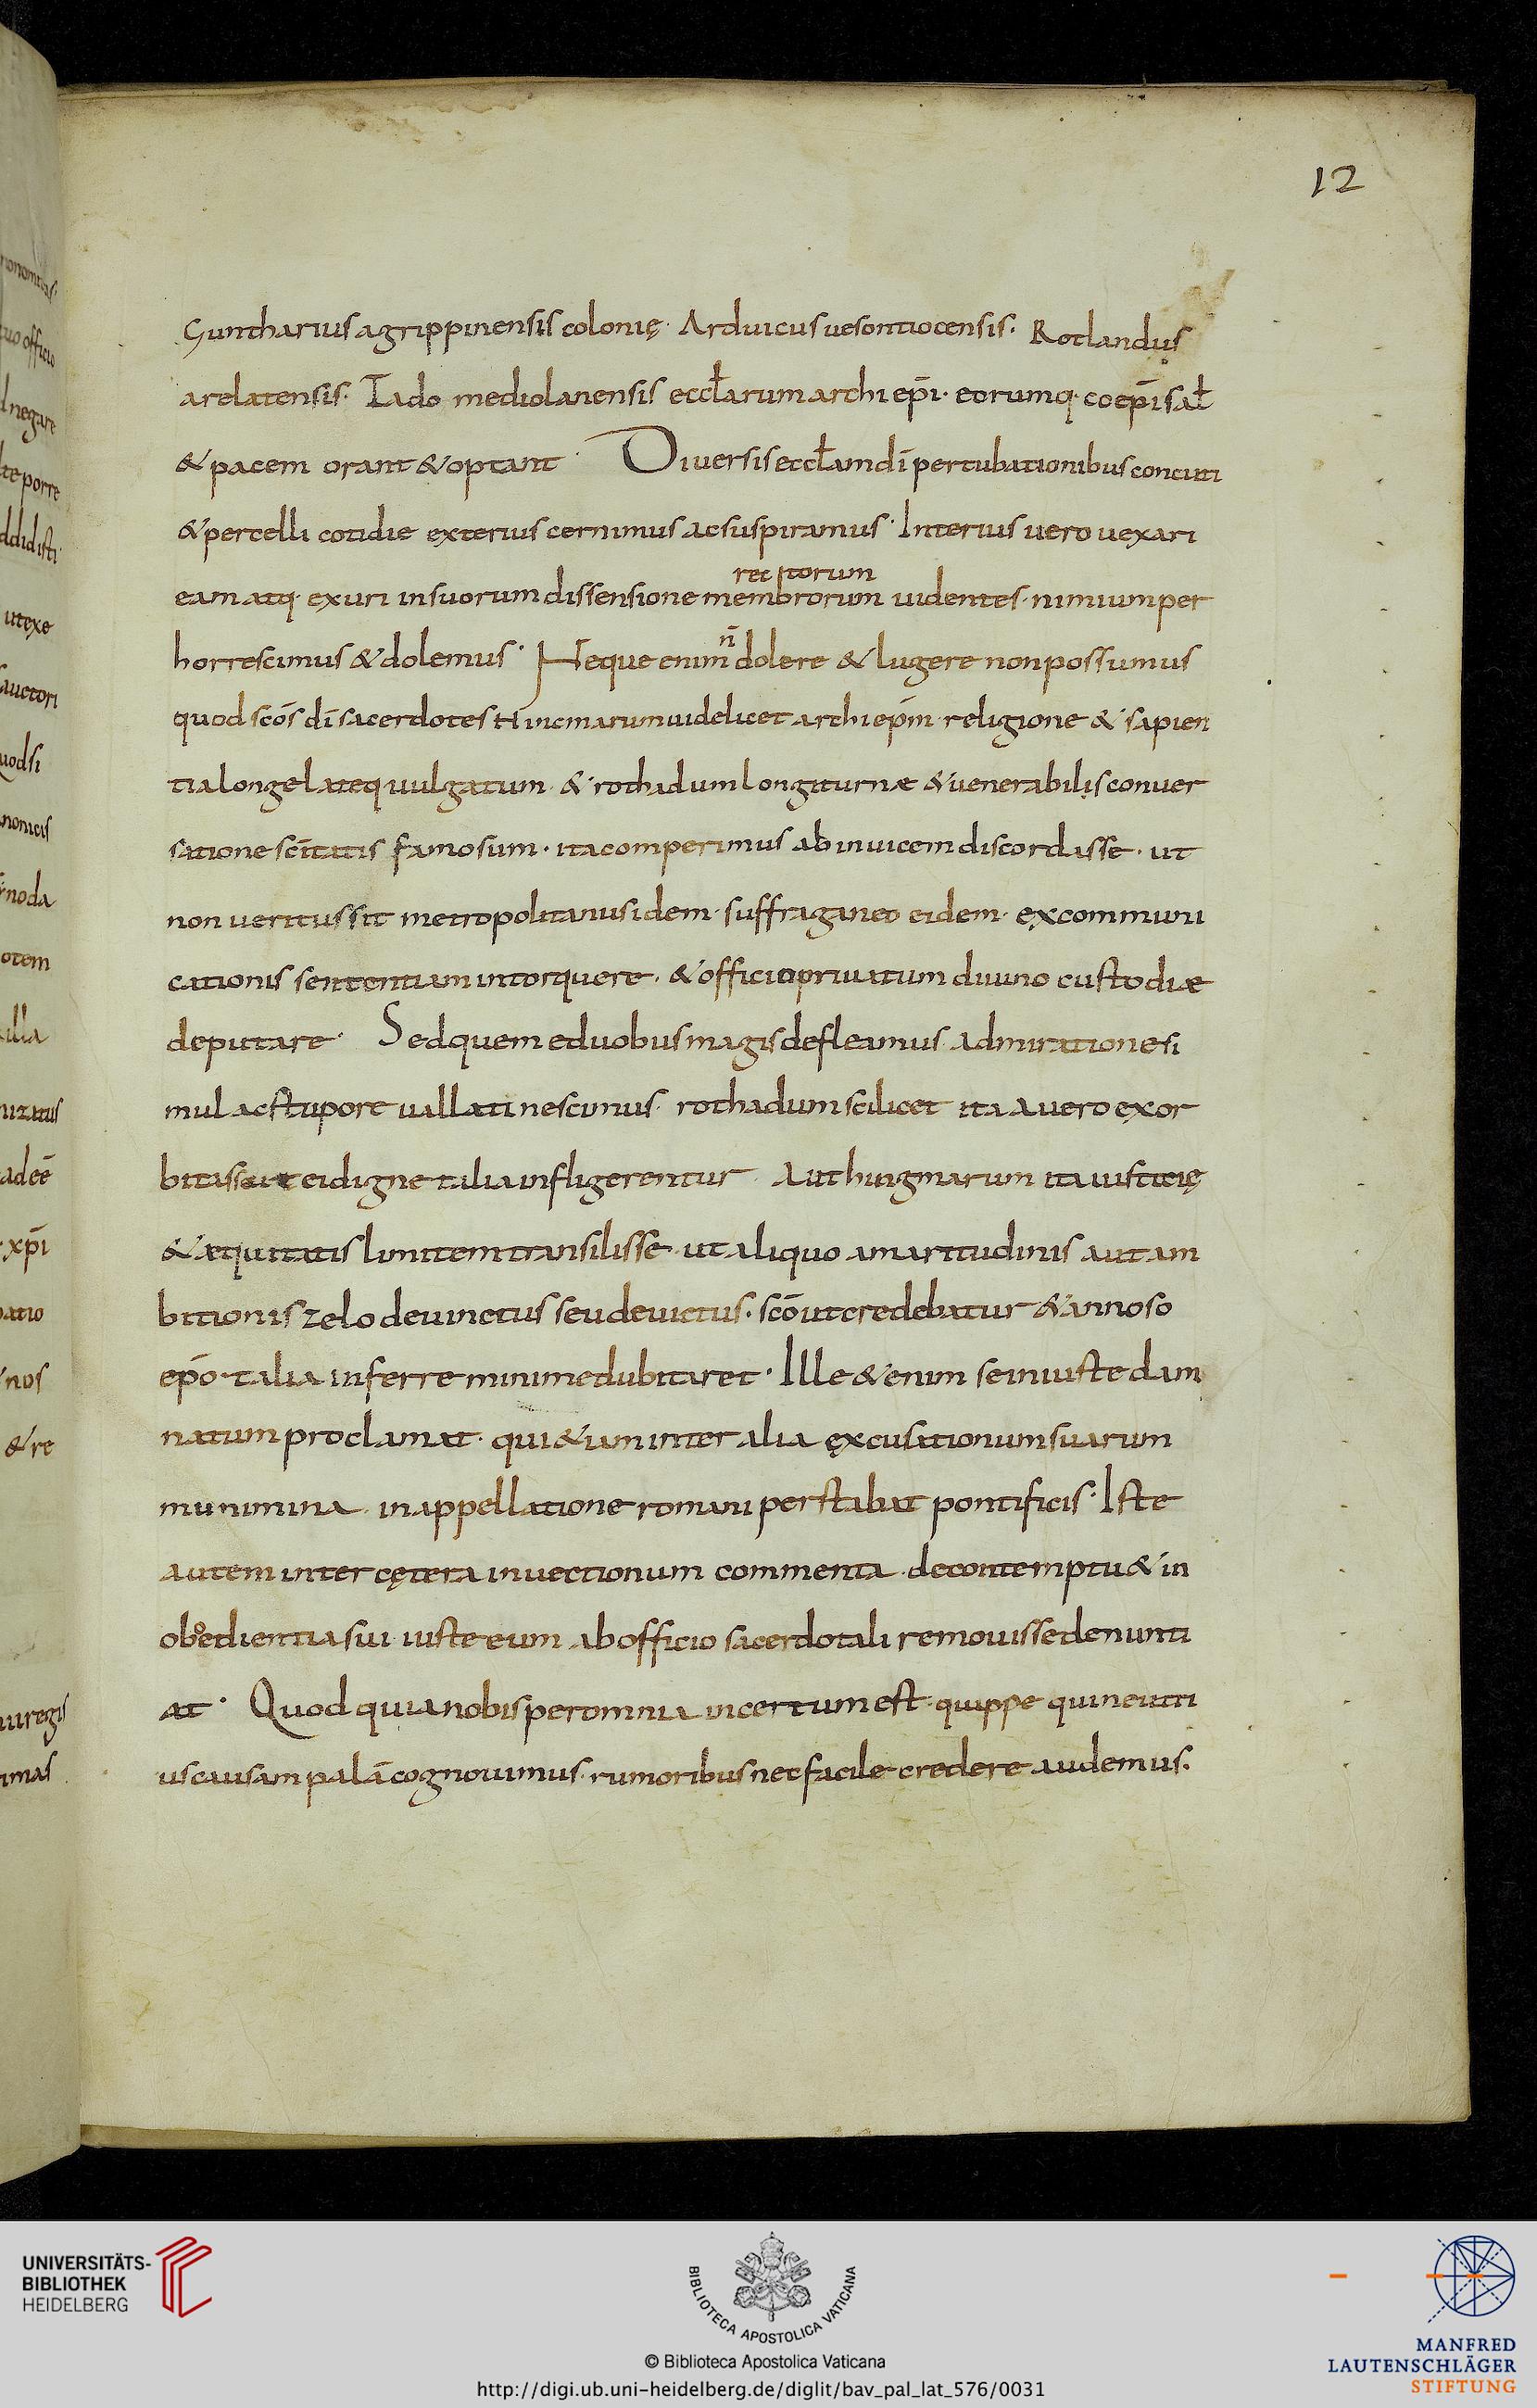 12
Guntharius agrippinensis colonię· Arduicus uesontiocensis· Rotlandus
arelatensis· Tado mediolanensis eccłarum archi ep̄i· eorumq· coep̄i sał
& pacem orant & optant· Diuersis eccłam dī pertubationibus concuti
& percelli cotidie exterius cernimus ac suspiramus· Interius uero uexari
rectorum
eam atq· exuri in suorum dissensione membrorum uidentes· nimium per
n̄
horrescimus & dolemus· Neque enim dolere & lugere non possumus
quod sc̄os dī sacerdotes Hincmarum uidelicet archi ep̄m· religione & sapien
tia longe lateq uulgatum· & rothadum longiturnæ & uenerabilis conuer
satione sc̄itatis famosum· ita comperimus ab inuicem discordasse· ut
non ueritus sit metropolitanus idem· suffraganeo eidem· excommuni
cationis sententiam intorquere· & officio priuatum diuino custodiæ
deputare· Sed quem e duobus magis defleamus admiratione si
mul ac stupore uallati nescimus· rothadum scilicet ita a uero exor
bitasse ut ei digne talia infligerentur· Aut hingmarum ita iusticię
& æquitatis limitem transilisse· ut aliquo amaritudinis aut am
bitionis zelo deuinctus seu deuictus· sc̄o ut credebatur & annoso
ep̄o· talia inferre minime dubitaret· Ille & enim se iniuste dam
natum proclamat· qui & iam inter alia excusationum suarum
munimina· in appellatione romani perstabat pontificis· Iste
autem inter cętera inuectionum commenta· de contemptu & in
obedientia sui iuste eum ab officio sacerdotali remouisse denunti
at· Quod quia nobis per omnia incertum est· quippe qui neutri
us causam palā cognouimus· rumoribus nec facile credere audemus·
UNIVERSITÄTS-
BIBLIOTHEK
HEIDELBERG
BIBLIOTECA APOSTOLICA VATICANA
© Biblioteca Apostolica Vaticana
http://digi.ub.uni-heidelberg.de/diglit/bav_pal_lat_576/0031
MANFRED
LAUTENSCHLÄGER
STIFTUNG